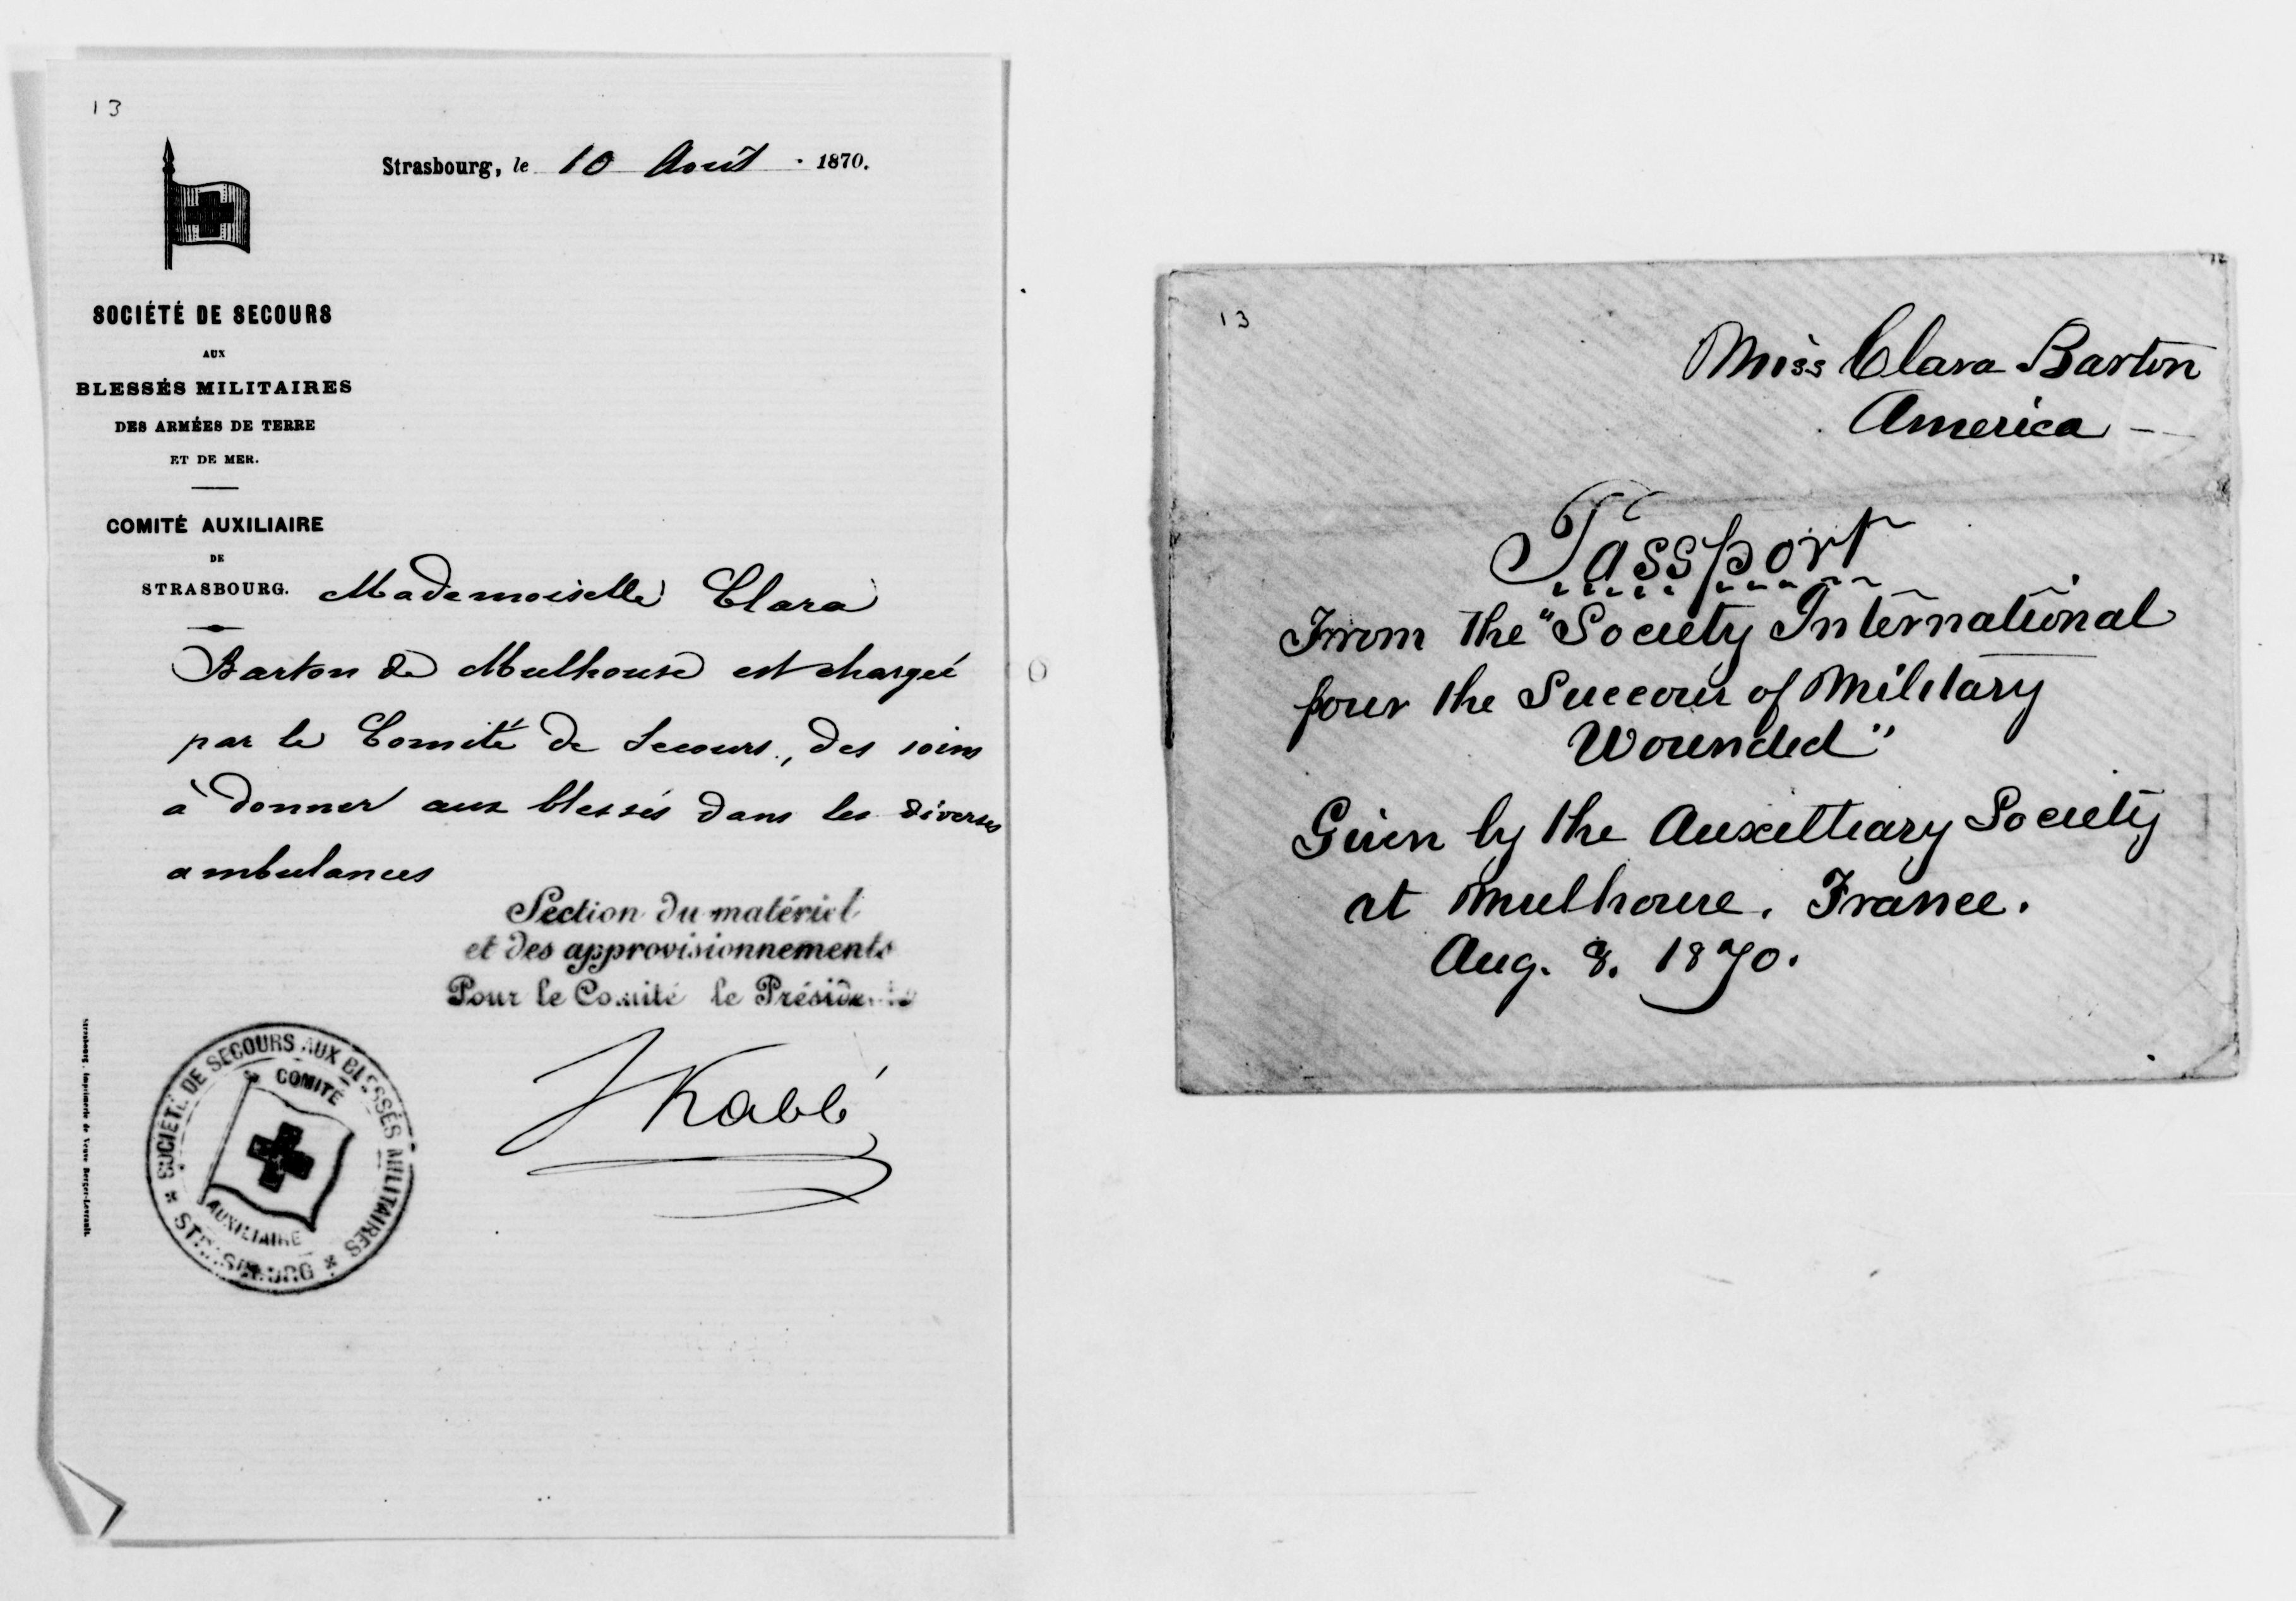 13
Strasbourg, le 10 Août 1870.
SOCIÉTÉ DE SECOURS
AUX
BLESSÉS MILITAIRES
DES ARMÉES DE TERRE
ET DE MER.
COMITÉ AUXILIAIRE
DE
STRASBOURG.
Mademoiselle Clara
Barton de Mulhouse est chargée
par le Comité de Secours, des soins
à donner aux blessés dans les diverses
ambulances
Section du matériel
et des approvisionnements
Pour le Comité le Président
Kablé
SOCIÉTÉ DE SECOURS AUX BLESSÉS MILITAIRES
COMITÉ
AUXILIAIRE
* STRASBOURG *
Strasbourg, Imprimerie de Veuve Berger-Levrault.
13
12
Miss Clara Barton
America -
Passport
From the "Society International
pour the Succour of Military
Wounded"
Given by the Auxilliary Society
at Mulhouse. France.
Aug. 8. 1870.